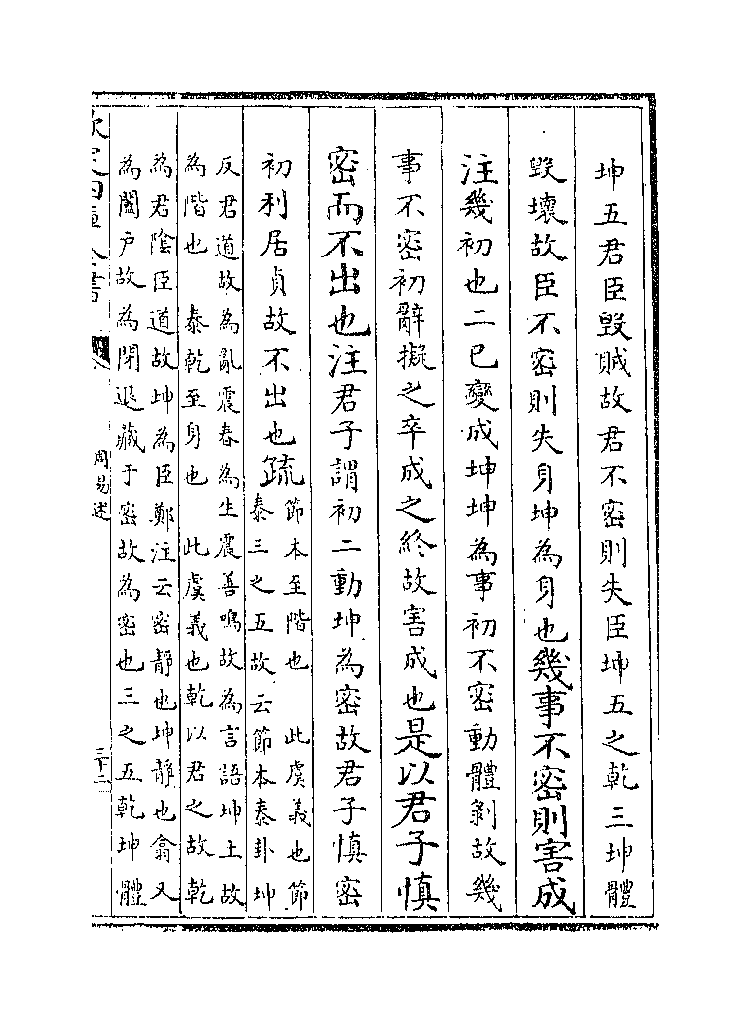 坤五君臣毁賊故君不密則失臣坤五之乾三坤體
毁壞故臣不密則失身坤為身也幾事不密則害成
注幾初也二已變成坤坤為事初不密動體剝故幾
事不密初辭擬之卒成之終故害成也是以君子慎
密而不出也注君子謂初二動坤為密故君子慎密
初利居貞故不出也疏
節本至階也 此虞義也節
泰三之五故云節本泰卦坤
反君道故為亂震春為生震善鳴故為言語坤土故
為階也 泰乾至身也 此虞義也乾以君之故乾
為君陰臣道故坤為臣鄭注云密靜也坤靜也翕又
為闔戶故為閉退藏于密故為密也三之五乾坤體
周易述
三十二